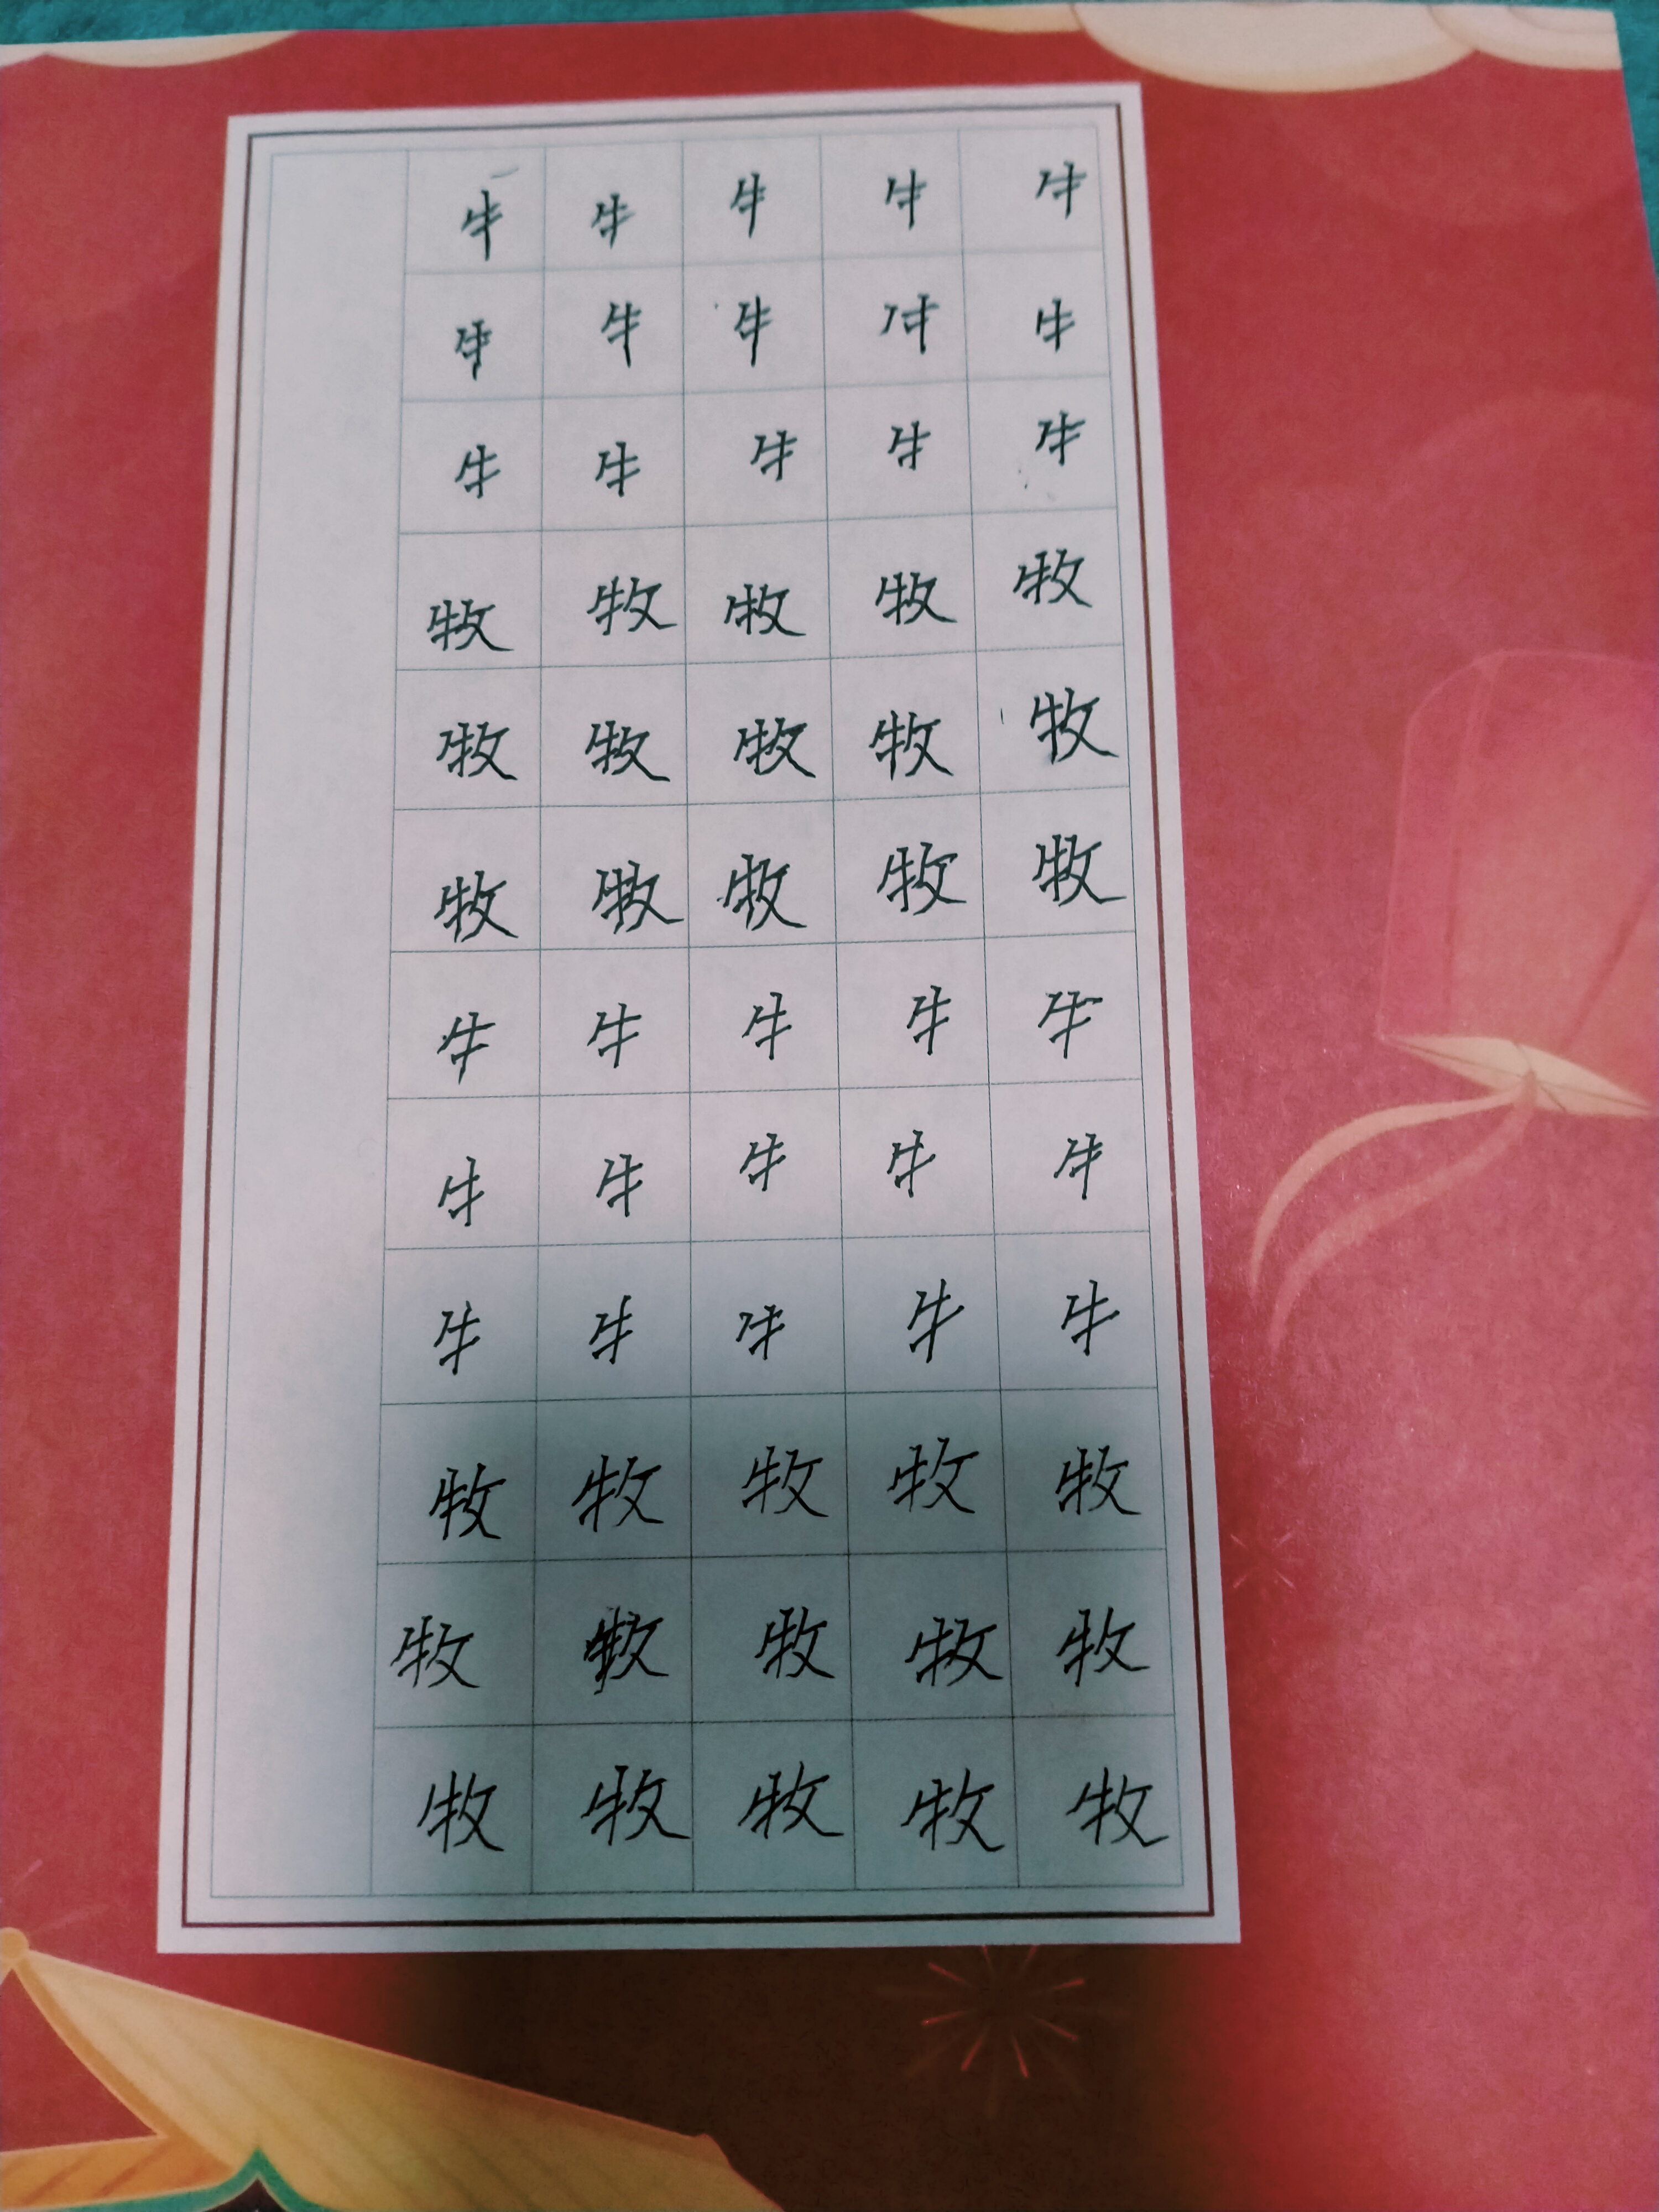 牛牛牛牛牛
牛牛牛牛牛
牛牛牛牛牛
牧牧牧牧牧
牧牧牧牧牧
牧牧牧牧牧
牛牛牛牛牛
牛牛牛牛牛
牛牛牛牛牛
牧牧牧牧牧
牧牧牧牧牧
牧牧牧牧牧